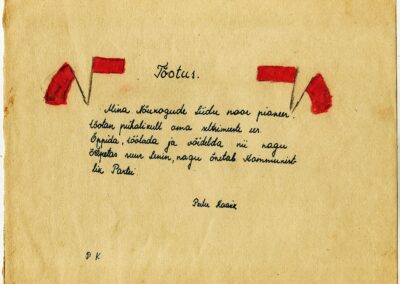 Tõotus.
Mina Nõukogude Liidu noor pioneer
tõotan pühalikult oma seltsimeeste ees
Õppida, töötada ja võidelda nii nagu
õpetas suur Lenin, nagu õpetab Kommunist
lik Partei
Peeter
P K